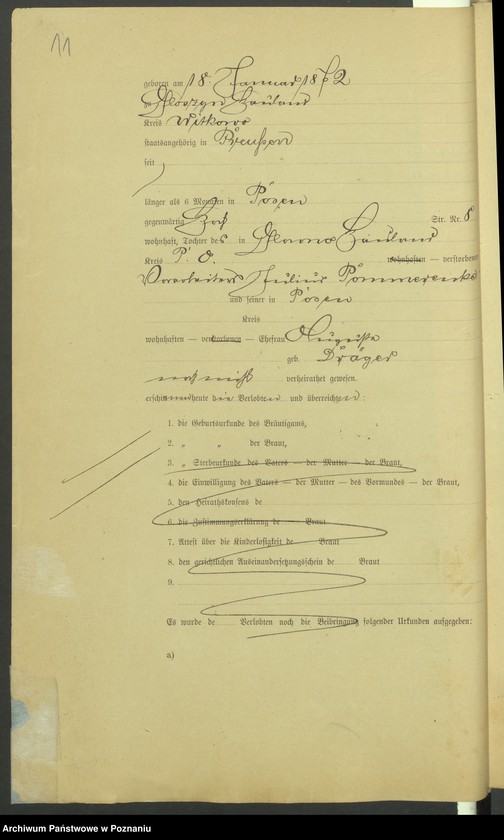 11
geboren am 18. Januar 1872
zu Hauland
Kreis Witkowo
staatsangehörig in Preußen
seit
länger als 6 Monaten in Posen
gegenwärtig Str. Nr. 8
wohnhaft, Tochter des in Hauland
Kreis P. O. wohnhaften — verstorbenen
Vorarbeiters Julius Pommerenke
und seiner in Posen
Kreis
wohnhaften — verstorbenen — Ehefrau Auguste
geb. Dräger
noch nicht verheirathet gewesen.
erschienen heute die Verlobten und überreichten:
1. die Geburtsurkunde des Bräutigams,
2. „ „ der Braut,
3. „ Sterbeurkunde des Vaters — der Mutter — der Braut,
4. die Einwilligung des Vaters — der Mutter — des Vormundes — der Braut,
5. den Heirathskonsens de
6. die Zustimmungserklärung de Braut
7. Attest über die Kinderlosigkeit de Braut
8. den gerichtlichen Auseinandersetzungsschein de Braut
9.
Es wurde de Verlobten noch die Beibringung folgender Urkunden aufgegeben:
a)
Archiwum Państwowe w Poznaniu